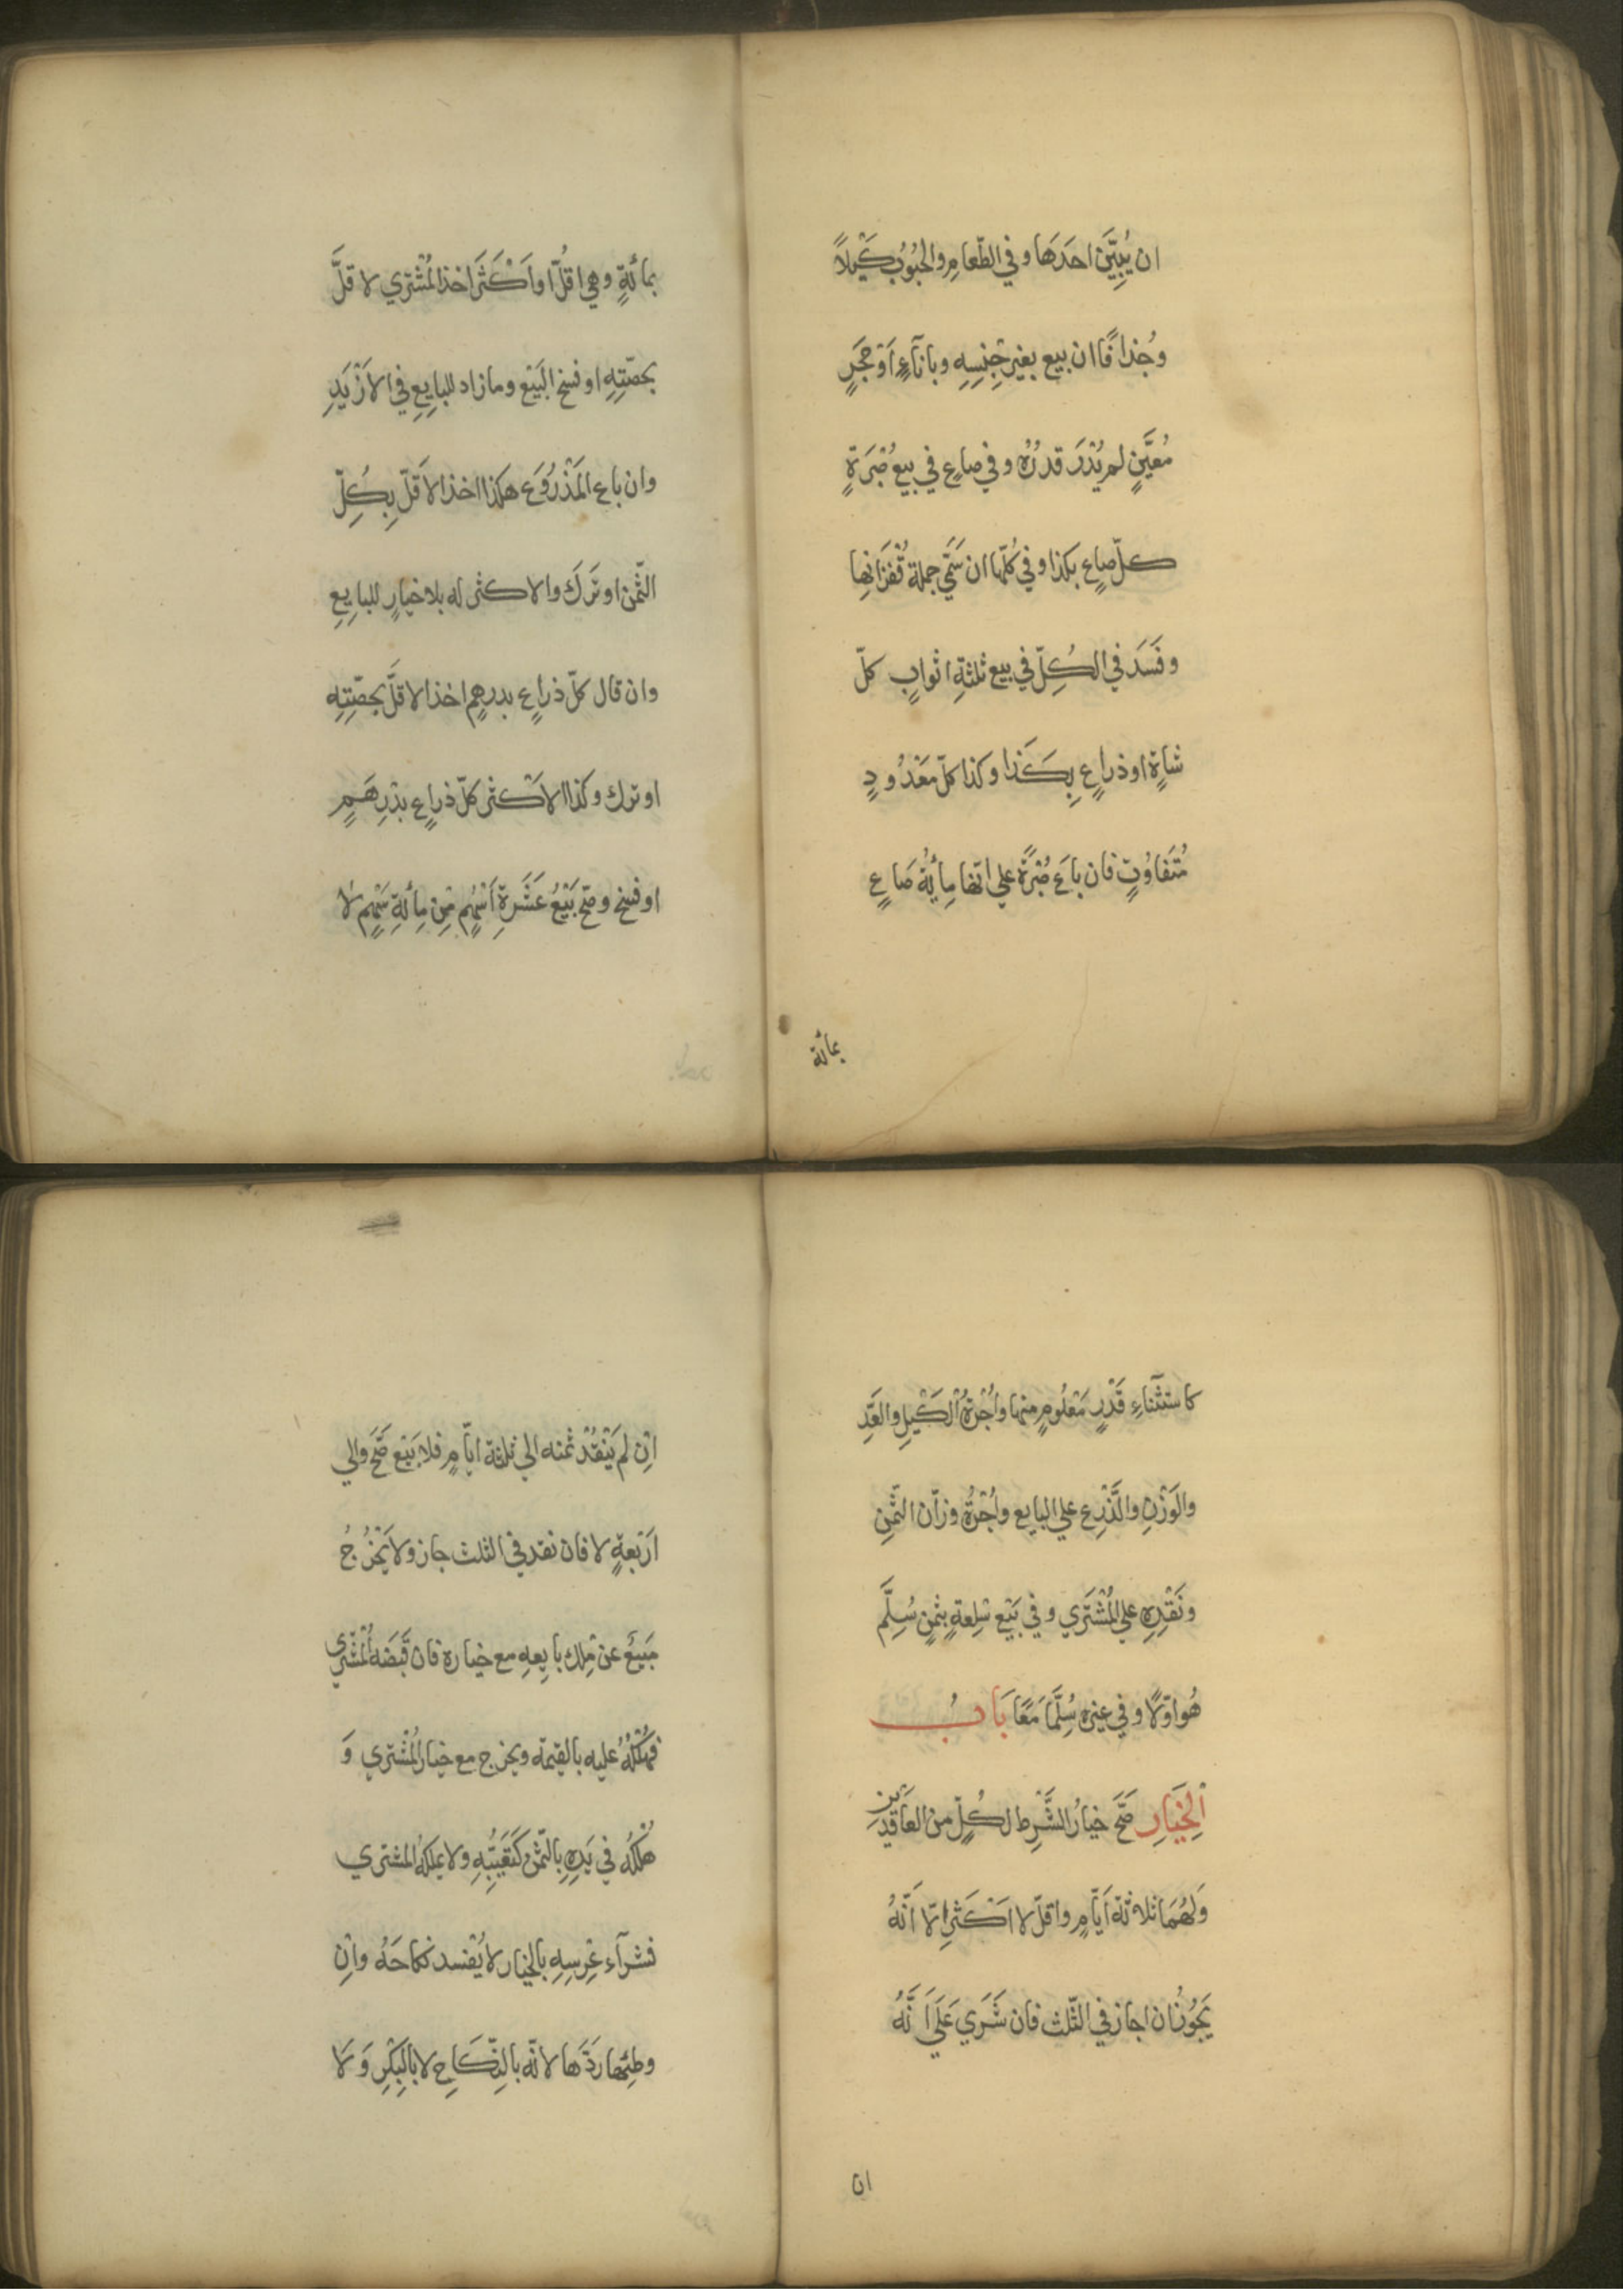 ان يُبيِّنَ احَدَهَا وفي الطّعامِ والحُبُوْبِ كَيْلاً
وجُذافًا ان بيع بغير جِنسِهِ وباناءٍ اَوْ حَجَرٍ
مُعيَّنٍ لم يُدْرَ قدرُهُ وفي صاعٍ في بيع صُبْرَةٍ
كلّ صاعٍ بكذا وفي كُلّها ان سَمّي جملة قُفْزَانِها
وفَسَدَ في الكُلِّ في بيع ثلثةِ اثوابٍ كلّ
شاةٍ او ذراعٍ بِكَذَا وكذا كلّ مَعْدُودٍ
مُتَفَاوُتٍ فان باعَ صُبْرَةً علي انّها مِأيةُ صَاعٍ
بمأئة
بمائةٍ وهي اقلُّ او اَكْثَرَ اخذ المُشْتري لاقلَّ
بحصّتِهِ او فسخ البَيْع وما زاد للبايِعِ في الاَزْيَدِ
وان باع المَذْرُوعَ هكذا اخذ الاَقلّ بِكُلِّ
الثّمن او تَرَكَ والاكثر له بلا خيارٍ للبايِعِ
وان قال كلّ ذراعٍ بدرهمٍ اخذ الاقلَّ بحصّتِهِ
او ترك وكذا الاَكْثر كلّ ذراعٍ بدْرِهَمٍ
او فسخ وصحّ بَيْعُ عَشَرةِ اَسْهُمٍ مِّن مِائةِ سَهْمٍ لا
كاستثناءِ قَدْرٍ مَعْلُومٍ منها واُجْرةُ الكَيْلِ والعَدِّ
والوَزْنِ والذَّرْعِ علي البايع واُجْرَةُ وزّان الثّمنِ
ونَقْدِهِ علي المُشْتَري وفي بَيْعِ سِلعةٍ بثمنٍ سُلِّمَ
هُو اوّلاً وفي غيره سُلِّمَا مَعًا بَابُ
اَلْخِيَارِ صَحَّ خيارُ الشَّرطِ لكُلٍّ من العَاقدَيْنِ
وَلهُمَا ثلاثة اَيّامٍ واقلّ لا اَكْثر اِلّا اَنَّهُ
يَجُوزُ ان اجاز في الثّلث فان شَرَي عَلَي اَنَّهُ
ان
اِن لم يَنْقُدْ ثمنه الي ثلثة ايّامٍ فلا بَيْع صَحَّ والي
اَرْبعةٍ لا فان نقد في الثلث جاز ولا يَخْرُجُ
مَبيعٌ عن مِلك بايعِهِ مع خياره فان قَبَضَهُ المُشْتري
فهُلْكُهُ عليه بالقيمة ويخرج مع خيار المُشْتري وَ
هُلْكُهُ في يَدِهِ بالثّمن كَتَعَيُّبِهِ ولا يملكهُ المشتري
فشراء عِرْسِهِ بالخيار لا يُفْسد نكاحَهُ واِن
وطِئها رَدَّها لانّه بالنِّكَاحِ لا بالبِكْرِ وَلَا